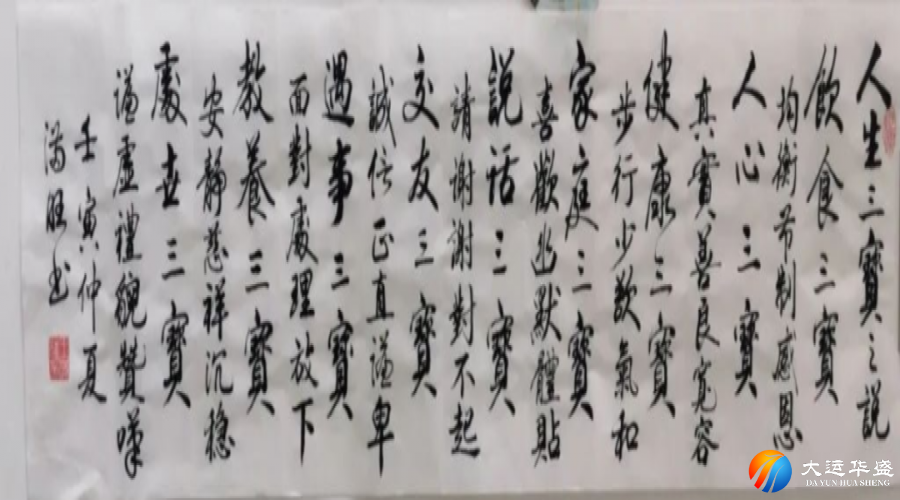 人生三寶之説
飲食三寶
均衡节制感恩
人心三寶
真實善良寬容
健康三寶
步行少欲氣和
家庭三寶
喜歡幽默體貼
説話三寶
請謝謝對不起
交友三寶
誠信正直謙卑
遇事三寶
面對處理放下
教養三寶
安靜慈祥沉穩
處世三寶
謙虛禮貌贊嘆
壬寅仲夏
滿旺书
大运华盛
DA YUN HUA SHENG